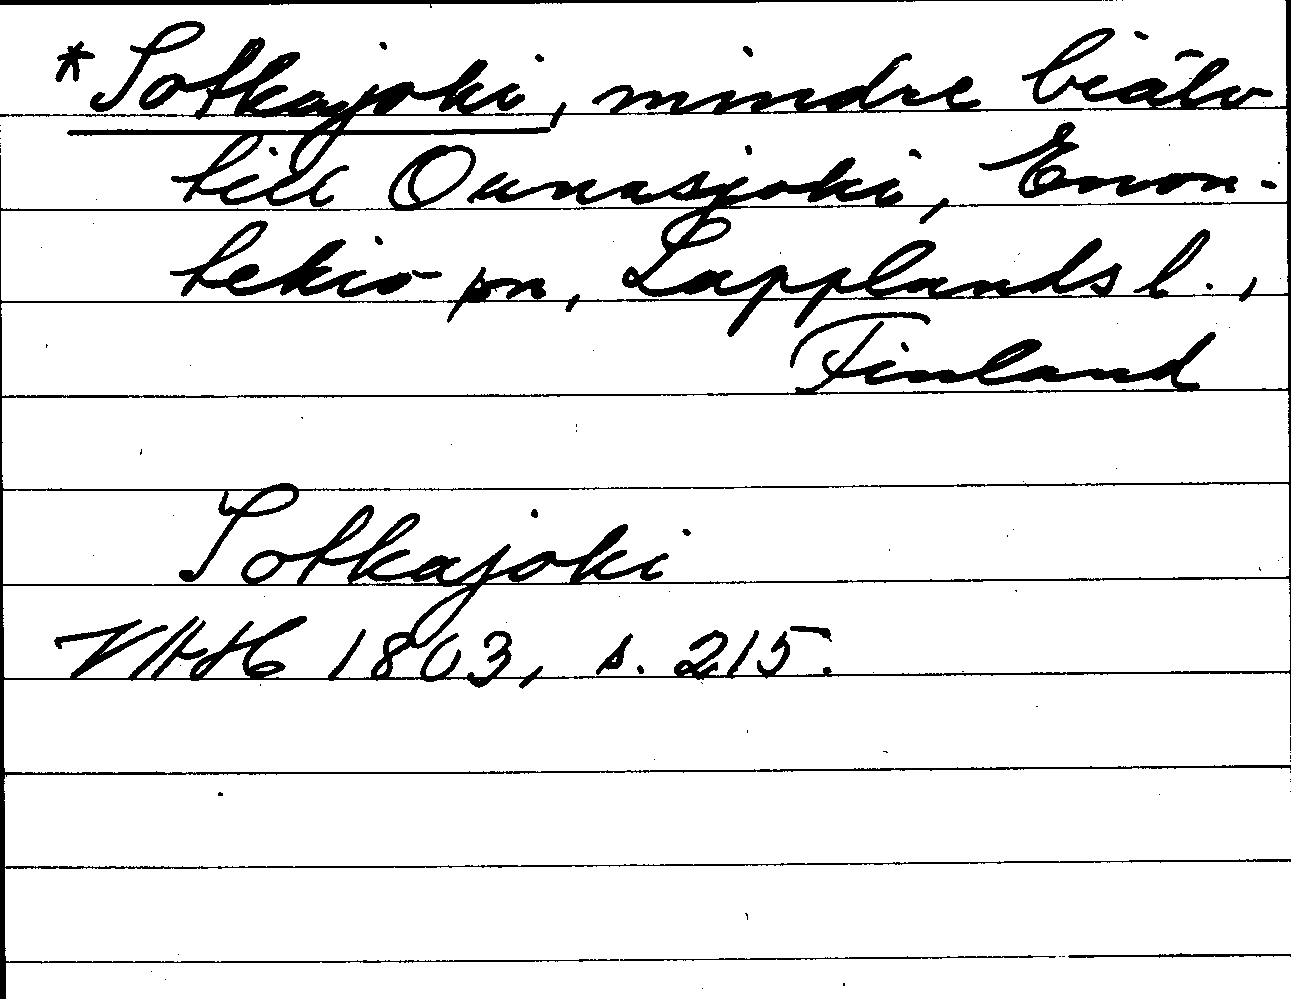 *Sotkajoki, mindre biälv
till Ounasjoki, Enon-
tekiö pn, Lapplands l.,
Finland
Sotkajoki
1803, s. 215.